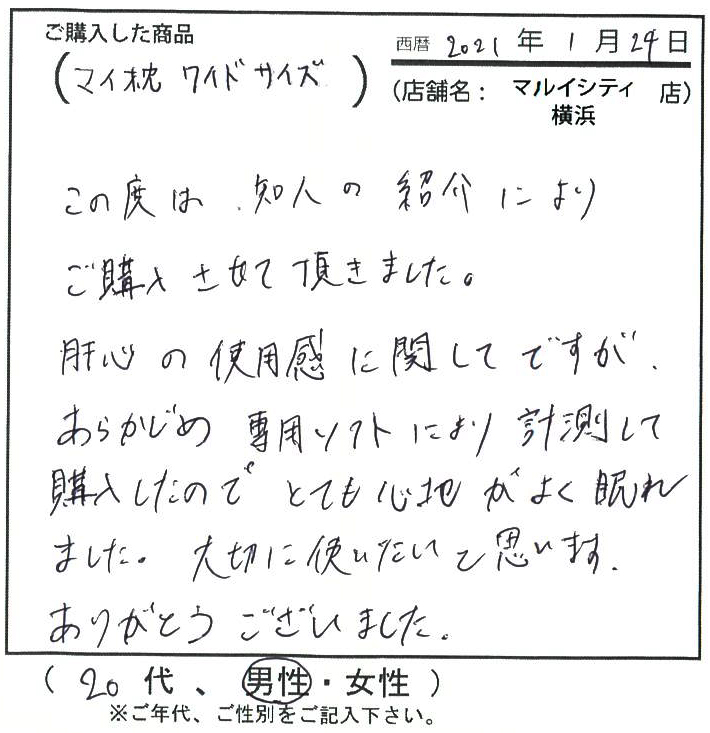 ご購入した商品
(マイ枕 ワイドサイズ)
西暦 2021 年 1 月 24 日
(店舗名： マルイシティ横浜 店)
この度は、知人の紹介により
ご購入させて頂きました。
肝心の使用感に関してですが、
あらかじめ専用ソフトにより計測して
購入したのでとても心地がよく眠れ
ました。大切に使いたいと思います。
ありがとうございました。
(20代、男性・女性)
※ご年代、ご性別をご記入下さい。